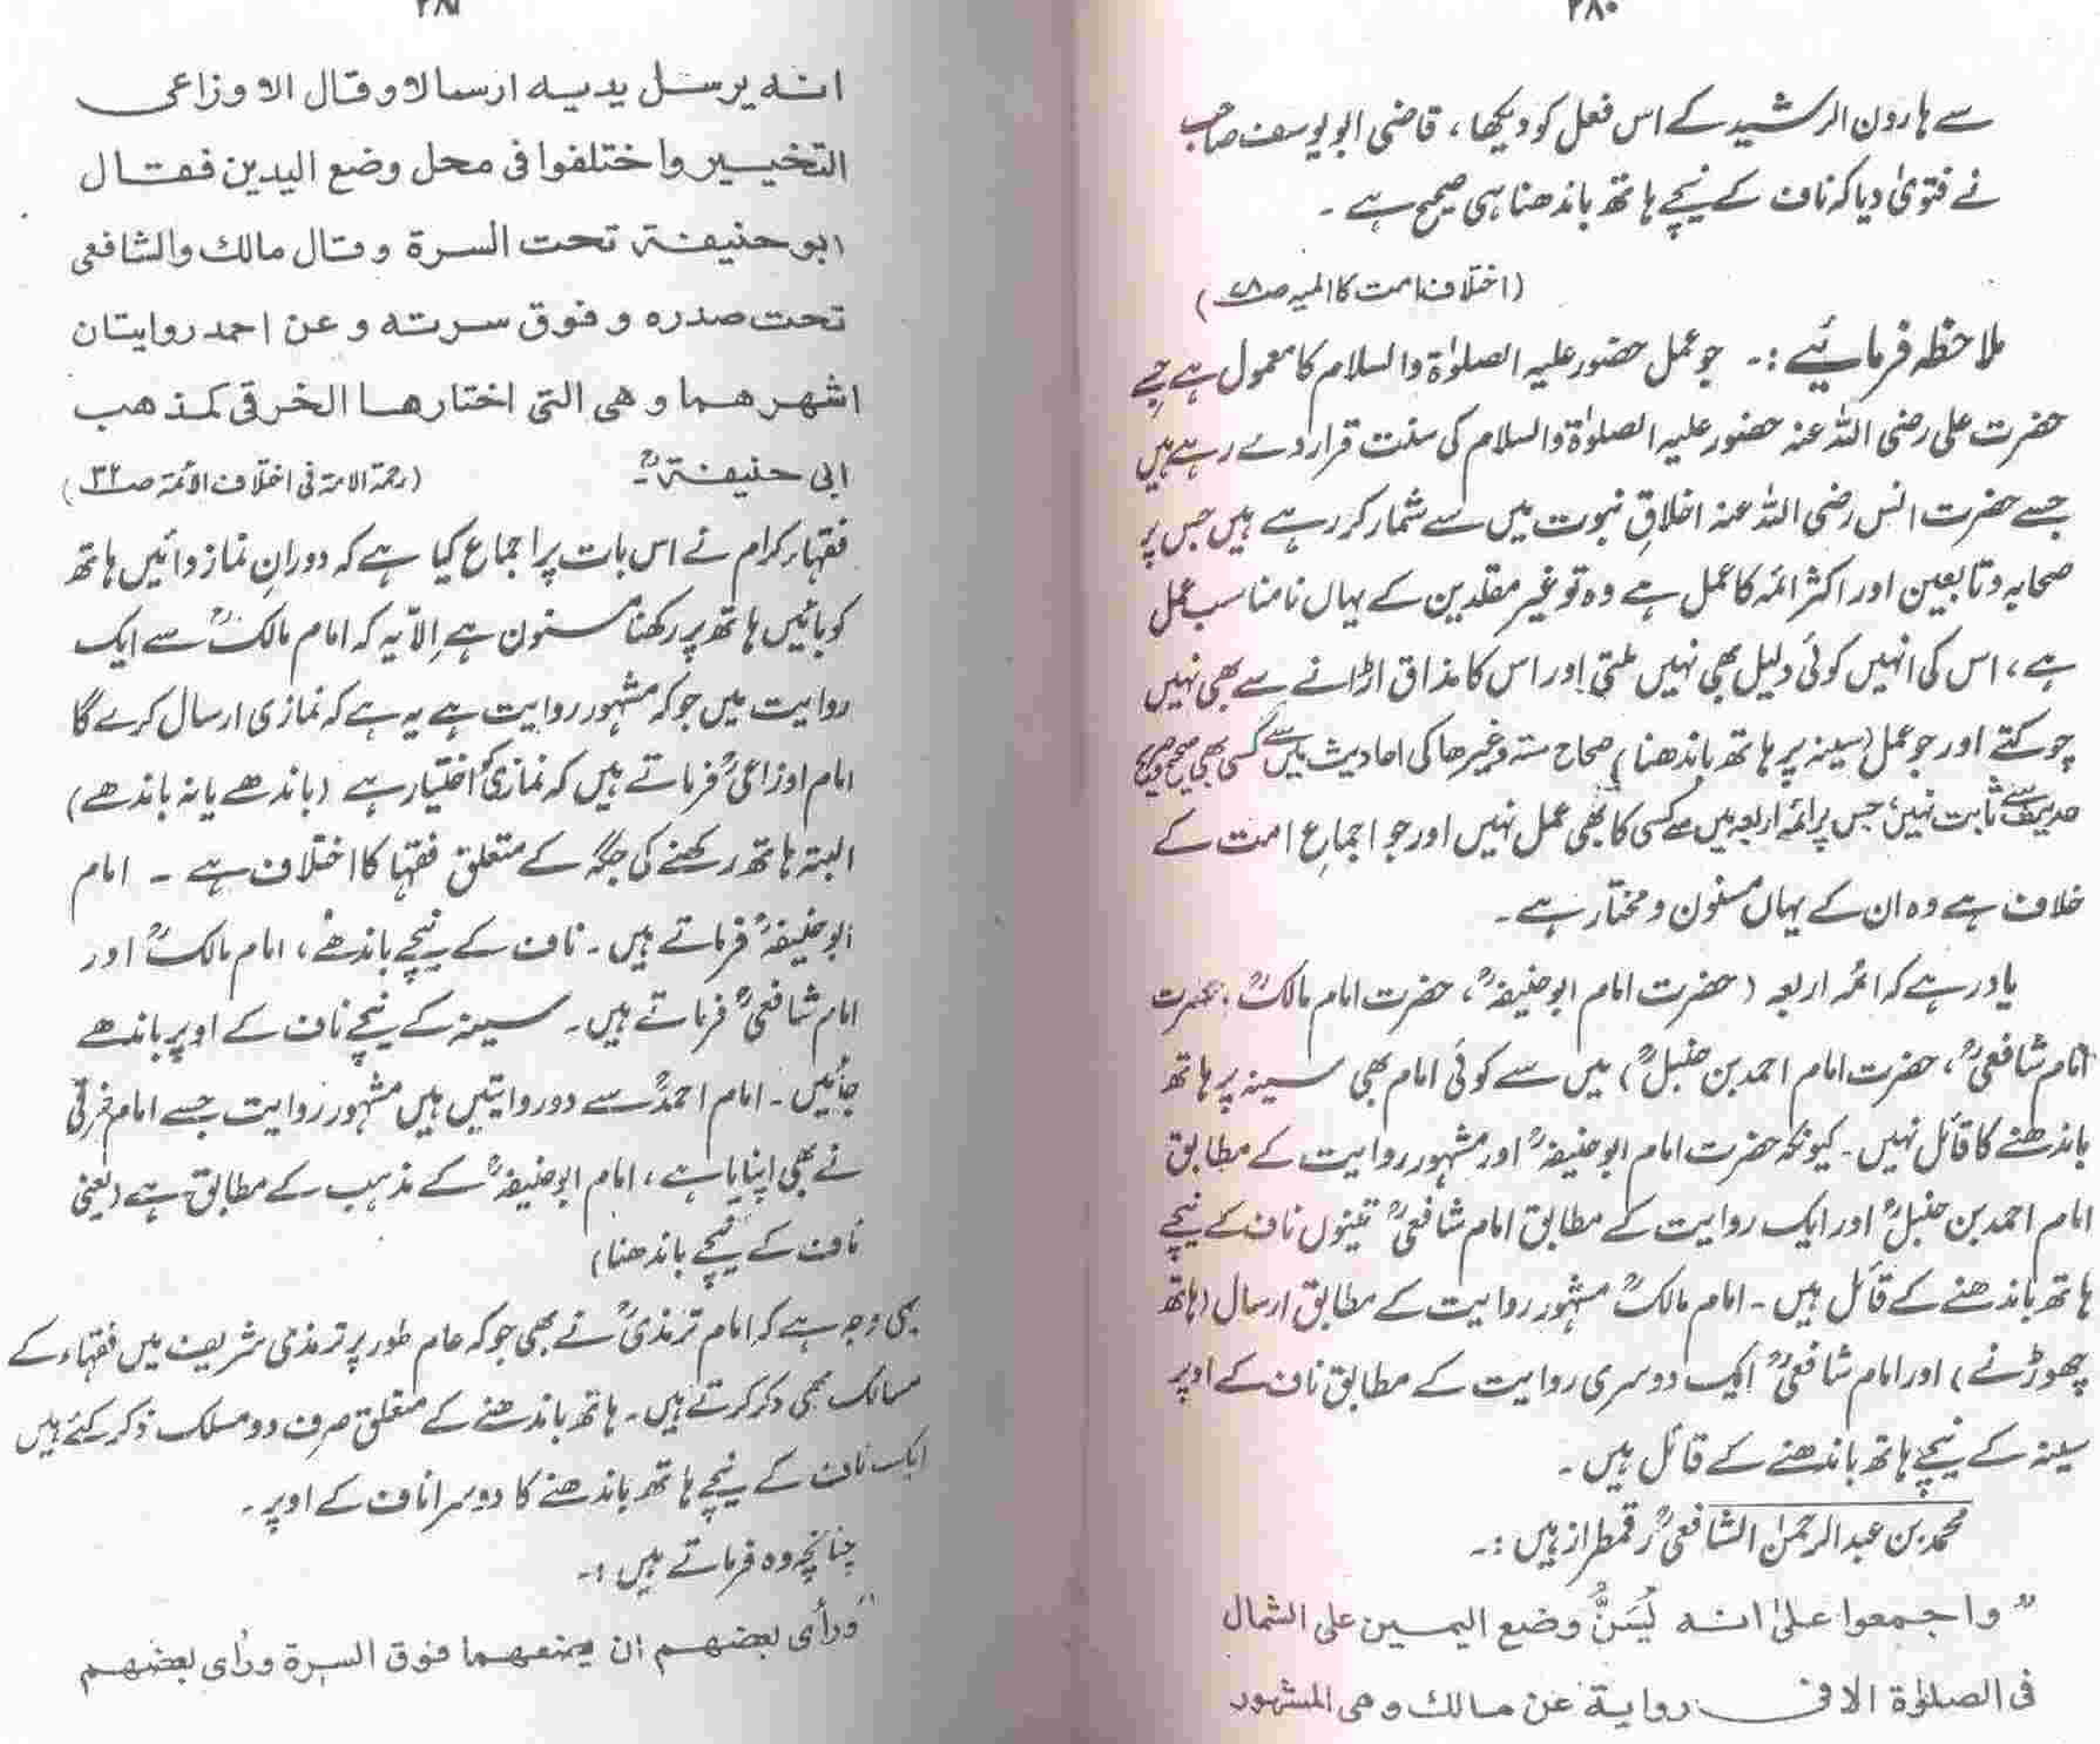 ۲۸۰
سے ہارون الرشید کے اس فعل کو دیکھا، قاضی ابو یوسف صاحب
نے فتویٰ دیا کہ ناف کے نیچے ہاتھ باندھنا ہی صحیح ہے ۔
(اختلاف امت کا المیہ صـ۷۸)
ملاحظہ فرمائیے :۔ جو عمل حضور علیہ الصلوٰۃ والسلام کا معمول ہے جسے
حضرت علی رضی اللہ عنہ حضور علیہ الصلوٰۃ والسلام کی سنت قرار دے رہے ہیں
جسے حضرت انس رضی اللہ عنہ اخلاقِ نبوت میں سے شمار کر رہے ہیں جس پر
صحابہ و تابعین اور اکثر ائمہ کا عمل ہے وہ تو غیر مقلدین کے یہاں نامناسب عمل
ہے، اس کی انہیں کوئی دلیل بھی نہیں ملتی اور اس کا مذاق اڑانے سے بھی نہیں
چوکتے اور جو عمل (سینہ پر ہاتھ باندھنا) صحاح ستہ وغیرھا کی احادیث میں سے کسی بھی صحیح صریح
حدیث سے ثابت نہیں، جس پر ائمہ اربعہ میں سے کسی کا بھی عمل نہیں اور جو اجماعِ امت کے
خلاف ہے وہ ان کے یہاں مسنون و مختار ہے ۔
یاد رہے کہ ائمہ اربعہ (حضرت امام ابو حنیفہؒ، حضرت امام مالکؒ، حضرت
امام شافعیؒ، حضرت امام احمد بن حنبلؒ) میں سے کوئی امام بھی سینہ پر ہاتھ
باندھنے کا قائل نہیں ۔ کیونکہ حضرت امام ابو حنیفہؒ اور مشہور روایت کے مطابق
امام احمد بن حنبلؒ اور ایک روایت کے مطابق امام شافعیؒ تینوں ناف کے نیچے
ہاتھ باندھنے کے قائل ہیں ۔ امام مالکؒ مشہور روایت کے مطابق ارسال (ہاتھ
چھوڑنے) اور امام شافعیؒ ایک دوسری روایت کے مطابق ناف کے اوپر
سینہ کے نیچے ہاتھ باندھنے کے قائل ہیں ۔
محمد بن عبد الرحمٰن الشافعیؒ رقمطراز ہیں :۔
" واجمعوا علیٰ انہ یُسَنُّ وضع الیمین علی الشمال
فی الصلوٰۃ الا فی روایۃ عن مالك وھی المشہور
۲۸۱
انہ یرسل یدیہ ارسالا وقال الاوزاعی
التخییر واختلفوا فی محل وضع الیدین فقال
ابو حنیفۃ تحت السرۃ وقال مالك والشافعی
تحت صدرہ وفوق سرتہ وعن احمد روایتان
اشھرھما وھی التی اختارھا الخرقی کمذھب
ابی حنیفۃؒ ۔" (رحمۃ الامۃ فی اختلاف الائمۃ صـ۳۲)
فقہاء کرام نے اس بات پر اجماع کیا ہے کہ دورانِ نماز دائیں ہاتھ
کو بائیں ہاتھ پر رکھنا مسنون ہے اِلّا یہ کہ امام مالکؒ سے ایک
روایت میں جو کہ مشہور روایت ہے یہ ہے کہ نمازی ارسال کرے گا
امام اوزاعیؒ فرماتے ہیں کہ نمازی کو اختیار ہے (باندھے یا نہ باندھے)
البتہ ہاتھ رکھنے کی جگہ کے متعلق فقہا کا اختلاف ہے ۔ امام
ابو حنیفہؒ فرماتے ہیں ۔ ناف کے نیچے باندھے، امام مالکؒ اور
امام شافعیؒ فرماتے ہیں ۔ سینہ کے نیچے ناف کے اوپر باندھے
جائیں ۔ امام احمدؒ سے دو روایتیں ہیں مشہور روایت جسے امام خرقی
نے بھی اپنایا ہے، امام ابو حنیفہؒ کے مذہب کے مطابق ہے (یعنی
ناف کے نیچے باندھنا)
یہی وجہ ہے کہ امام ترمذیؒ نے بھی جو کہ عام طور پر ترمذی شریف میں فقہاء کے
مسالک بھی ذکر کرتے ہیں ۔ ہاتھ باندھنے کے متعلق صرف دو مسلک ذکر کئے ہیں
ایک ناف کے نیچے ہاتھ باندھنے کا دوسرا ناف کے اوپر ۔
چنانچہ وہ فرماتے ہیں :۔
"ورأی بعضہم ان یضعھما فوق السرۃ ورأی بعضہم